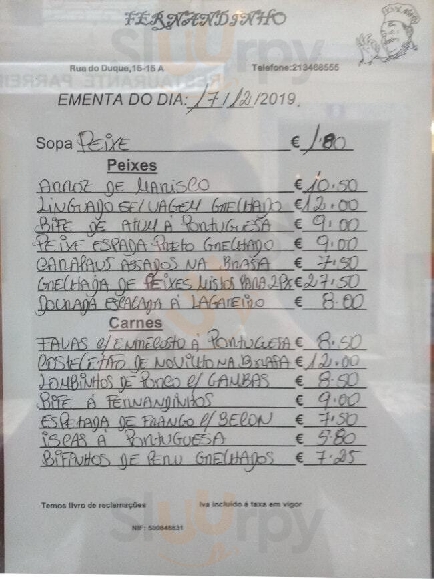 FERNANDINHO
Rua do Duque,15-15 A Telefone:213468555
EMENTA DO DIA: 17/2/2019.
Sopa PEIXE € 1.80
Peixes
ARROZ DE MARISCO € 10.50
LINGUADO SELVAGEM GRELHADO € 12.00
BIFE DE ATUM À PORTUGUESA € 9.00
PEIXE ESPADA PRETO GRELHADO € 9.00
CARAPAUS ASSADOS NA BRASA € 7.50
GRELHADA DE PEIXES MISTOS PARA 2 PX € 27.50
DOURADA ESCALADA À LAGAREIRO € 8.00
Carnes
FAVAS C/ENTRECOSTO À PORTUGUESA € 8.50
COSTELETÃO DE NOVILHO NA BRASA € 12.00
LOMBINHOS DE PORCO C/ GAMBAS € 8.50
BIFE À FERNANDINHOS € 9.00
ESPETADA DE FRANGO C/ BECON € 7.50
ISCAS À PORTUGUESA € 5.80
BIFINHOS DE PERU GRELHADOS € 7.25
Temos livro de reclamações Iva incluido á taxa em vigor
Sluurpy